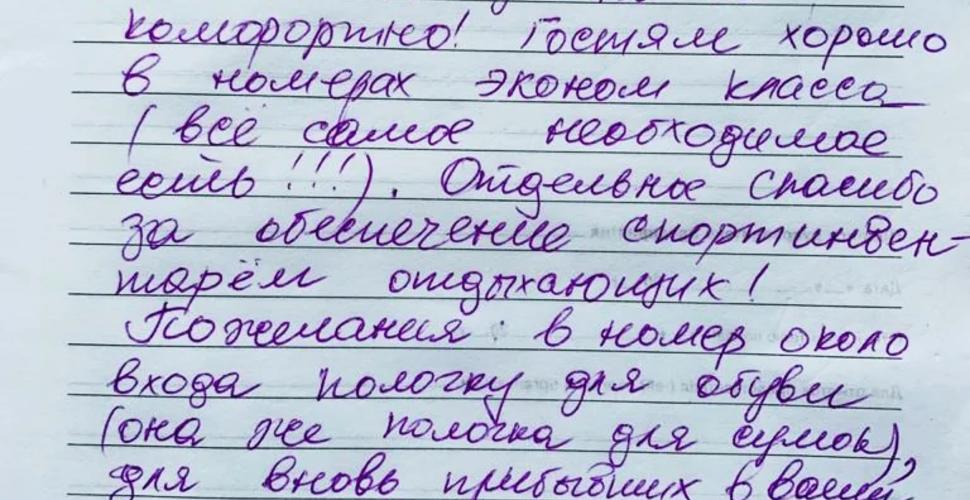 комфортно! Гостям хорошо
в номерах эконом класса
(всё самое необходимое
есть!!!). Отдельное спасибо
за обеспечение спортинвен-
тарём отдыхающих!
Пожелания: в номер около
входа полочку для обуви
(она же полочка для сумок),
для вновь прибывших в